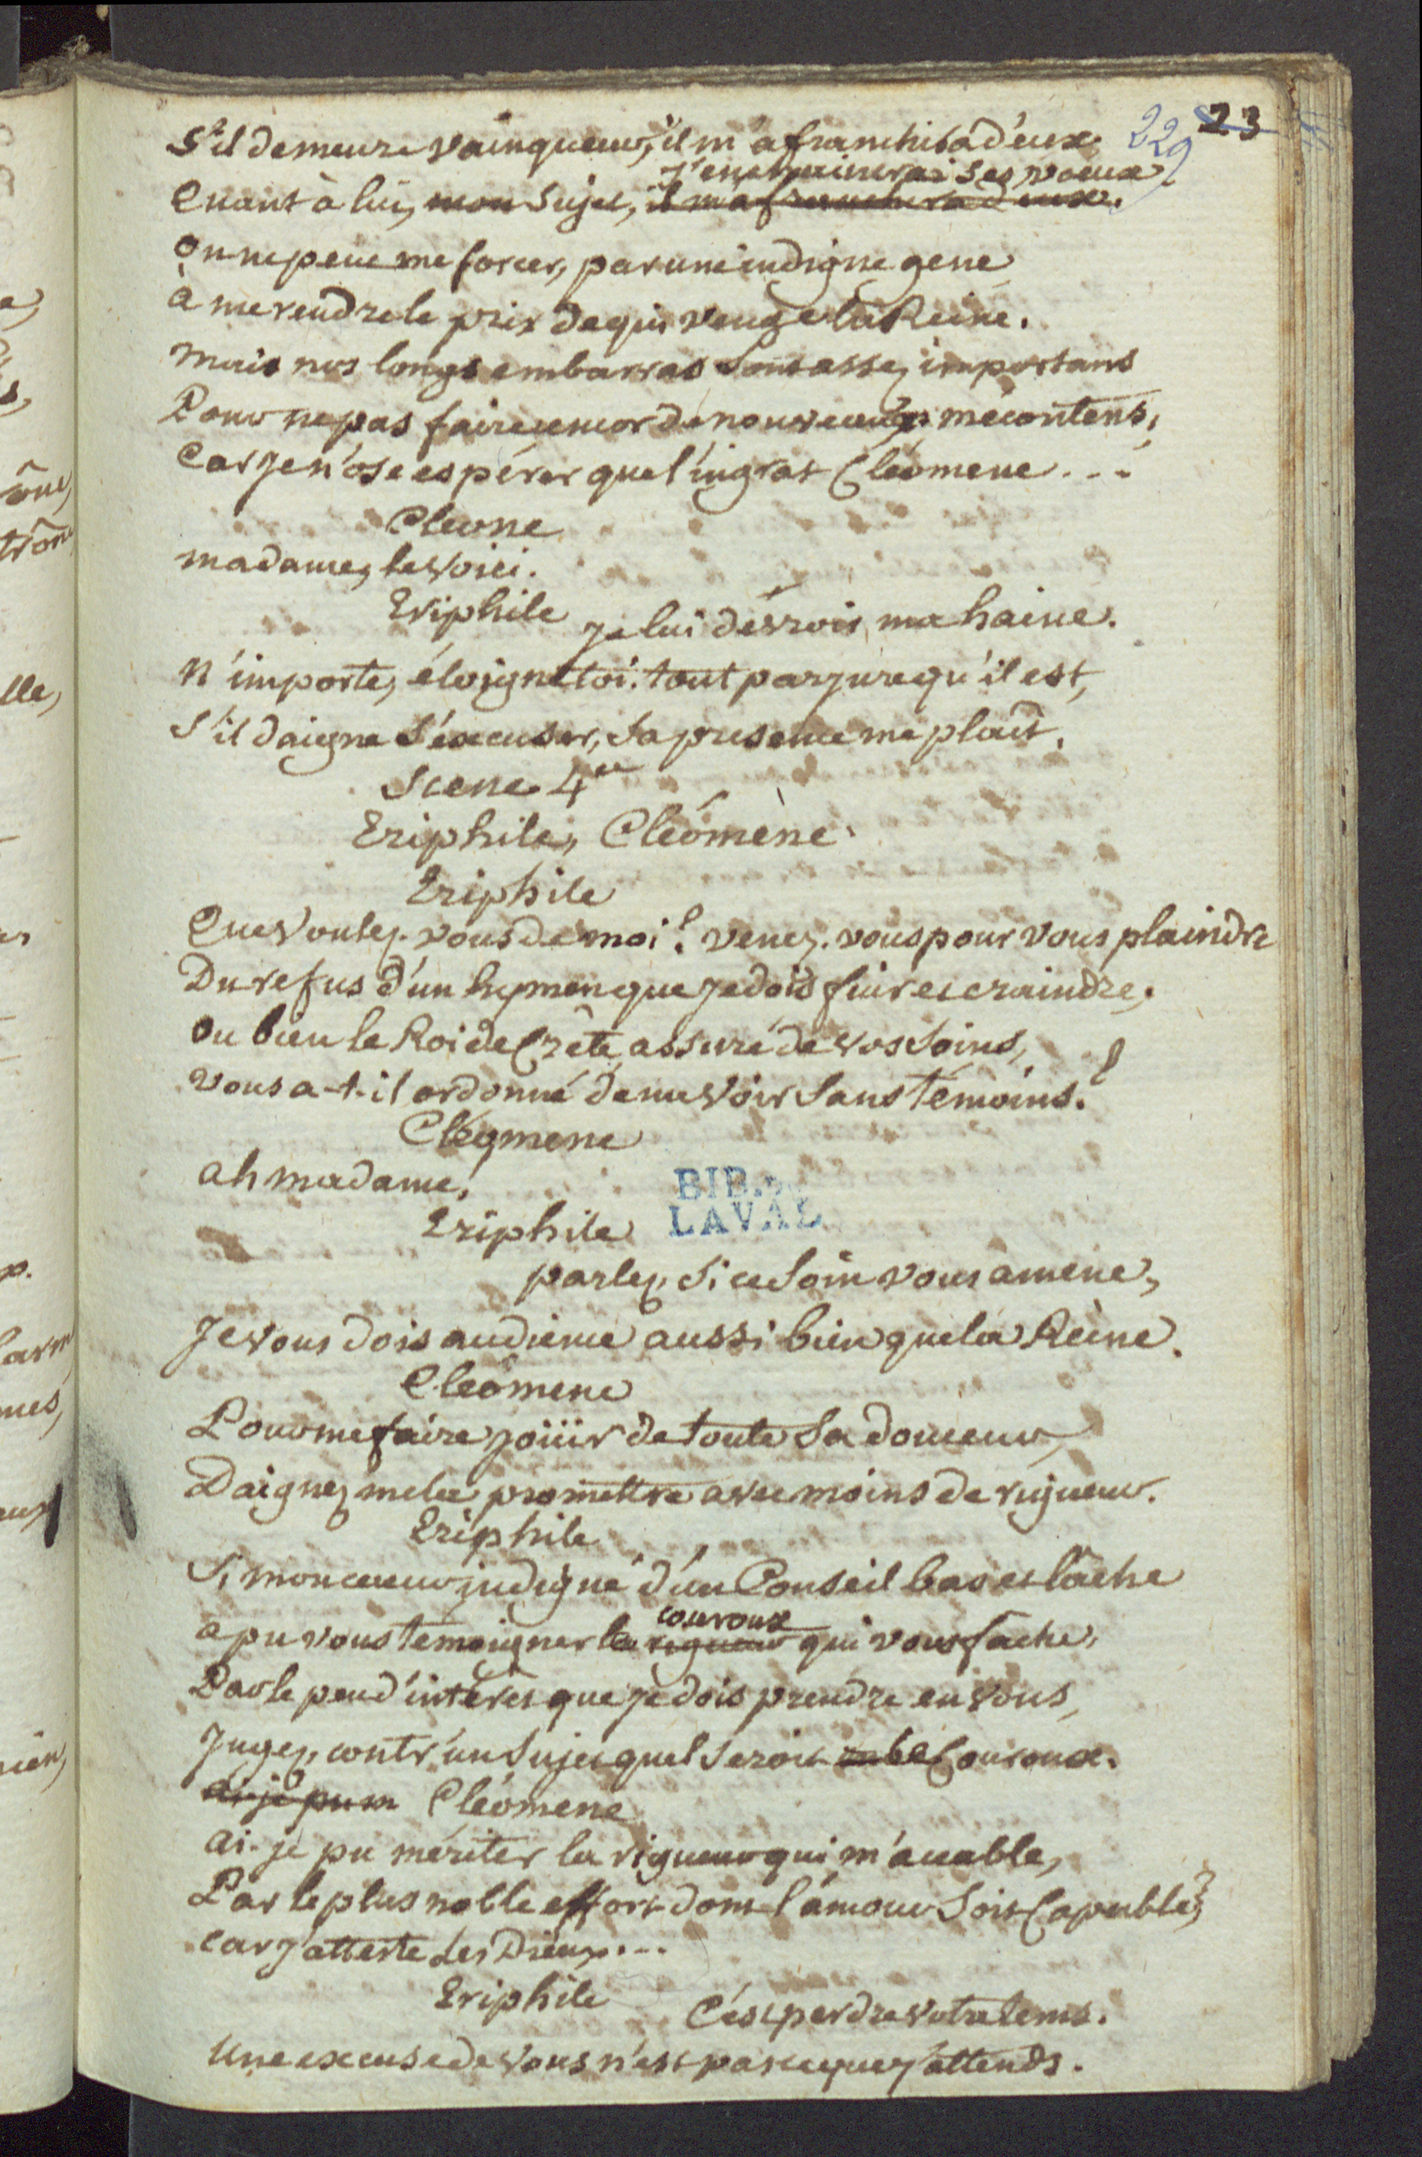 229 23
S'il demeure vainqueur, il m'afranchira d'eux
j'enchainerai ses voeux.
Quant à lui, mon Sujet, il m'afranchira d'eux.
On ne peut me forcer, par une indigne gene
à me rendre le prix de qui venge la Reine.
mais nos longs embarras Sont assez importans
Pour ne pas faire encor de nouveaux mécontens,
Car je n'ose espérer que l'ingrat Cléomene...
Cleone
madame, le voici.
Eriphile
Je lui dévrois ma haine.
N'importe, éloigne toi. tout parjure qu'il est,
S'il daigne s'éxcuser, Sa presence me plaît.
Scene 4e
Eriphile, Cléomène.
Eriphile
Que voulez-vous de moi? venez-vous pour vous plaindre
Du refus d'un hymen que je dois fuir et craindre,
Ou bien le Roi de Crête, assuré de vos Soins,
vous a-t-il ordonné de me voir Sans témoins?
Cléomene
ah madame,
BIB.
LAVAL
Eriphile
parlez, Si ce Soin vous amene,
Je vous dois audience aussi bien que la Reine.
Cléomene
Pour me faire joüir de toute Sa douceur,
Daignez me la promettre avec moins de rigueur.
Eriphile
Si mon coeur indigné d'un Conseil bas et lâche
couroux
a pu vous temoigner la rigueur qui vous fache,
Par le peu d'intérêt que je dois prendre en vous,
Jugez, contr'un Sujet quel Seroit Couroux.
ai-je pu m Cléomene
ai-je pu mériter la rigueur qui m'accable,
Par le plus noble effort dont l'amour Soit Capable?
car j'atteste Les Dieux...
Eriphile
C'est perdre votre tems.
Une excuse de vous n'est pas ce que j'attends.